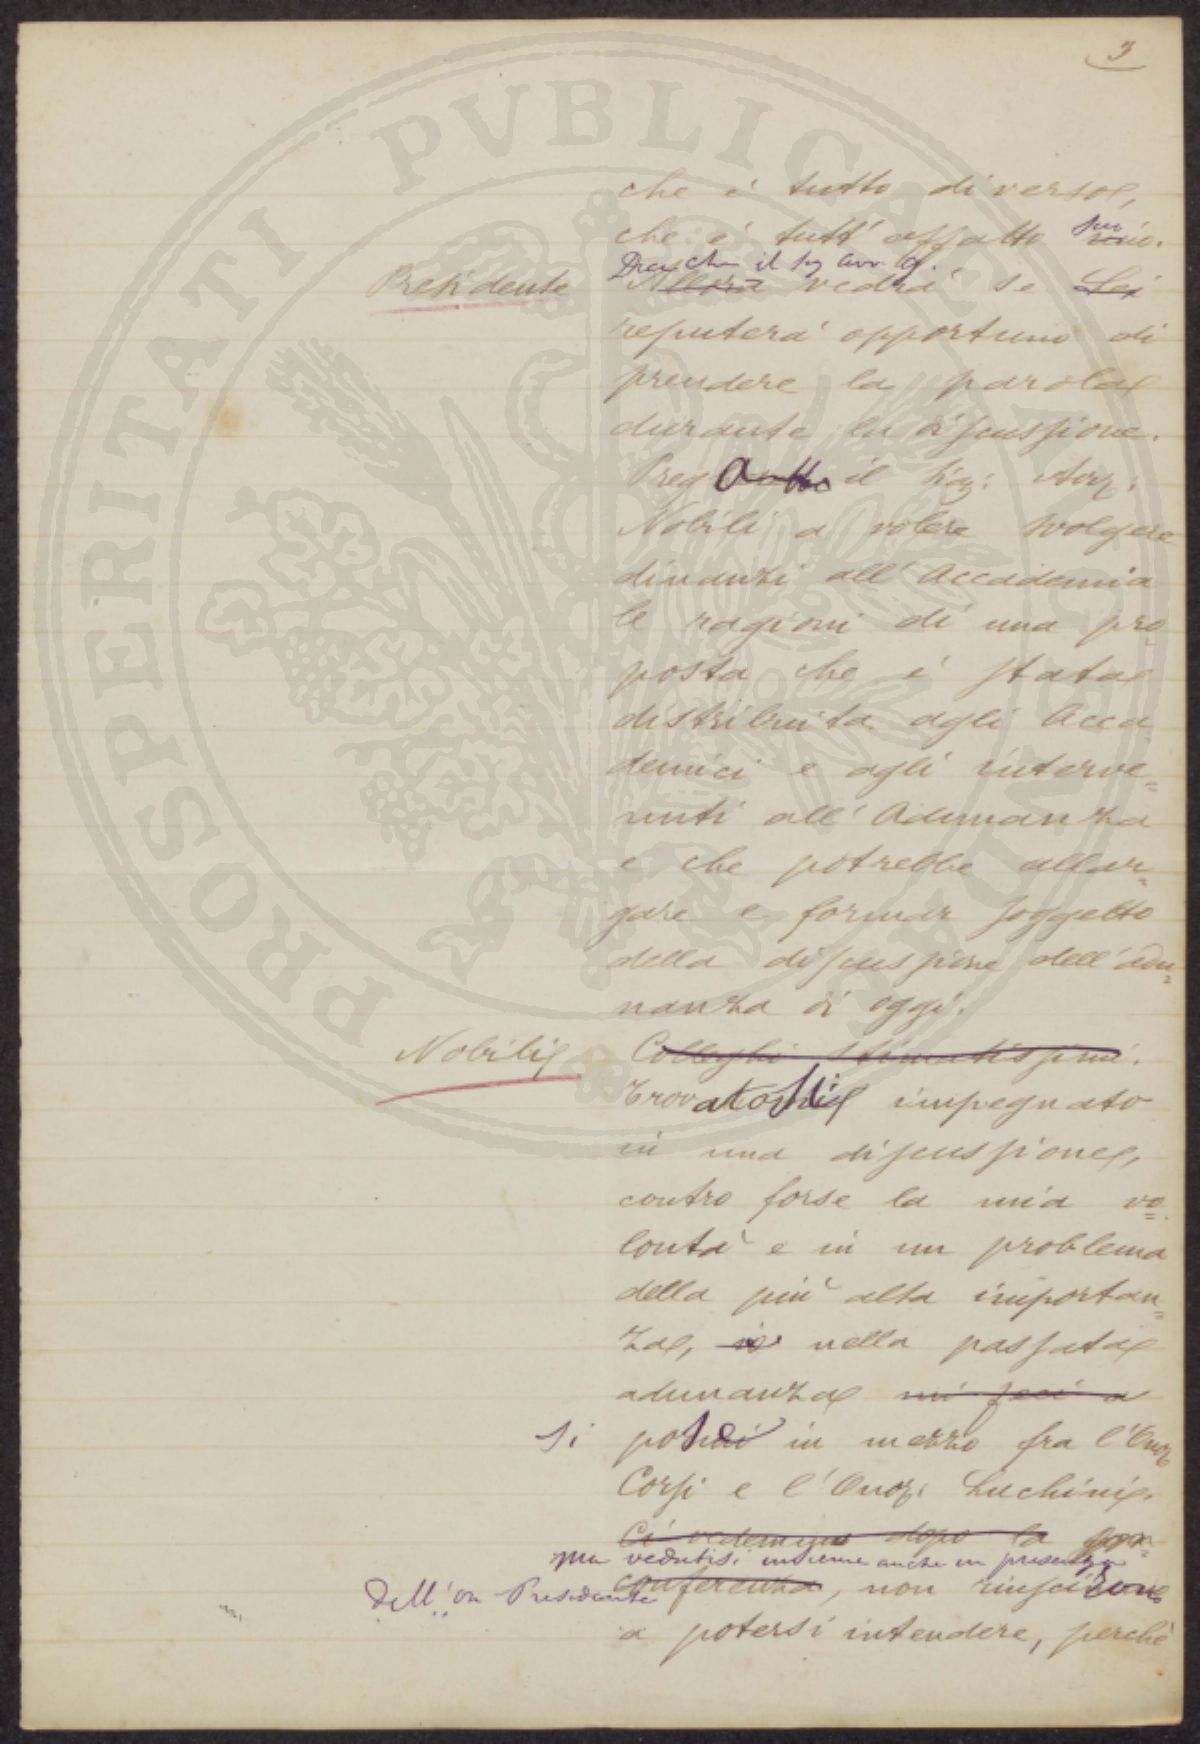 3
PROSPERITATI PVBLICAE AVGENDAE
che è tutto diverso,
che è tutt' affatto suo mio.
Dice che il sig avv. G.
Presidente Allora vedrà se Lei
reputerà opportuno di
prendere la parola
durante la discussione.
Prega il Sig: Avv:
Nobili a volere svolgere
dinanzi all' Accademia
le ragioni di una pro
posta che è stata
distribuita agli Acca
demici e agli interve=
nuti all' Adunanza
e che potrebbe allar=
gare e formar soggetto
della discussione dell' adu=
nanza di oggi.
Nobili Colleghi stimatissimi.
Trovatosi impegnato
in una discussione,
contro forse la mia vo=
lontà e in un problema
della più alta importan=
za, io nella passata
adunanza mi feci a
si pose in mezzo fra l'Onor
Corsi e l'Onor: Luchini.
Ci vedemmo dopo la con=
ma vedutisi insieme anche in presenza
dell' on Presidente conferenza, non riuscirono
a potersi intendere, perchè